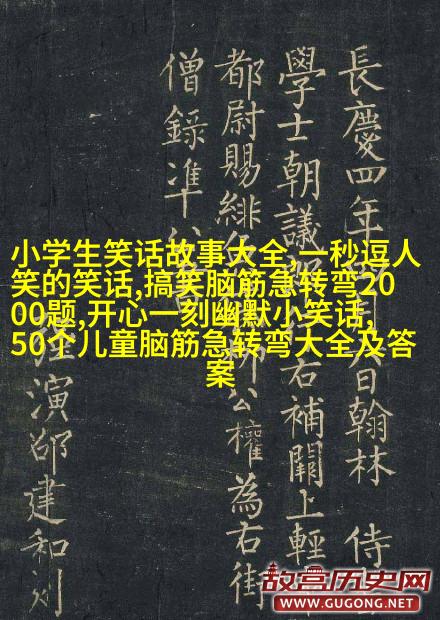 小学生笑话故事大全,一秒逗人
笑的笑话,搞笑脑筋急转弯20
00题,开心一刻幽默小笑话,
50个儿童脑筋急转弯大全及答
案
長慶四年日翰林侍
學士朝議右補闕上輕
都尉賜緋公權為右街
僧錄准公
演邵建和刻
故宫历史网
WWW.GUGONG.NET